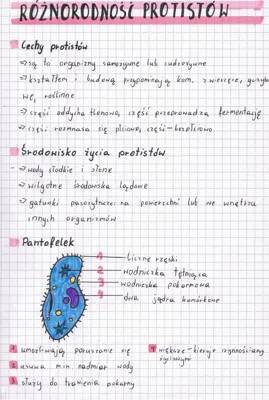 RÓŻNORODNOŚĆ PROTISTÓW
Cechy protistów
→są to organizmy samożywne lub cudzożywne
→kształtem i budową przypominają kom. zwierzęce, grzybo
we, roślinne
→część oddycha tlenowo, część przeprowadza fermentację
→część rozmnaża się płciowo, część-bezpłciowo
Środowisko życia protistów
→wody słodkie i słone
→wilgotne środowiska lądowe
→gatunki pasożytnicze: na powierzchni lub we wnętrzu
innych organizmów
Pantofelek
1 liczne rzęski
2 wodniczka tętniąca
3 wodniczka pokarmowa
4 dwa jądra komórkowe
1 umożliwiają poruszanie się
2 usuwa m.in. nadmiar wody
3 służy do trawienia pokarmu
4 większe-kieruje czynnościami
życiowymi